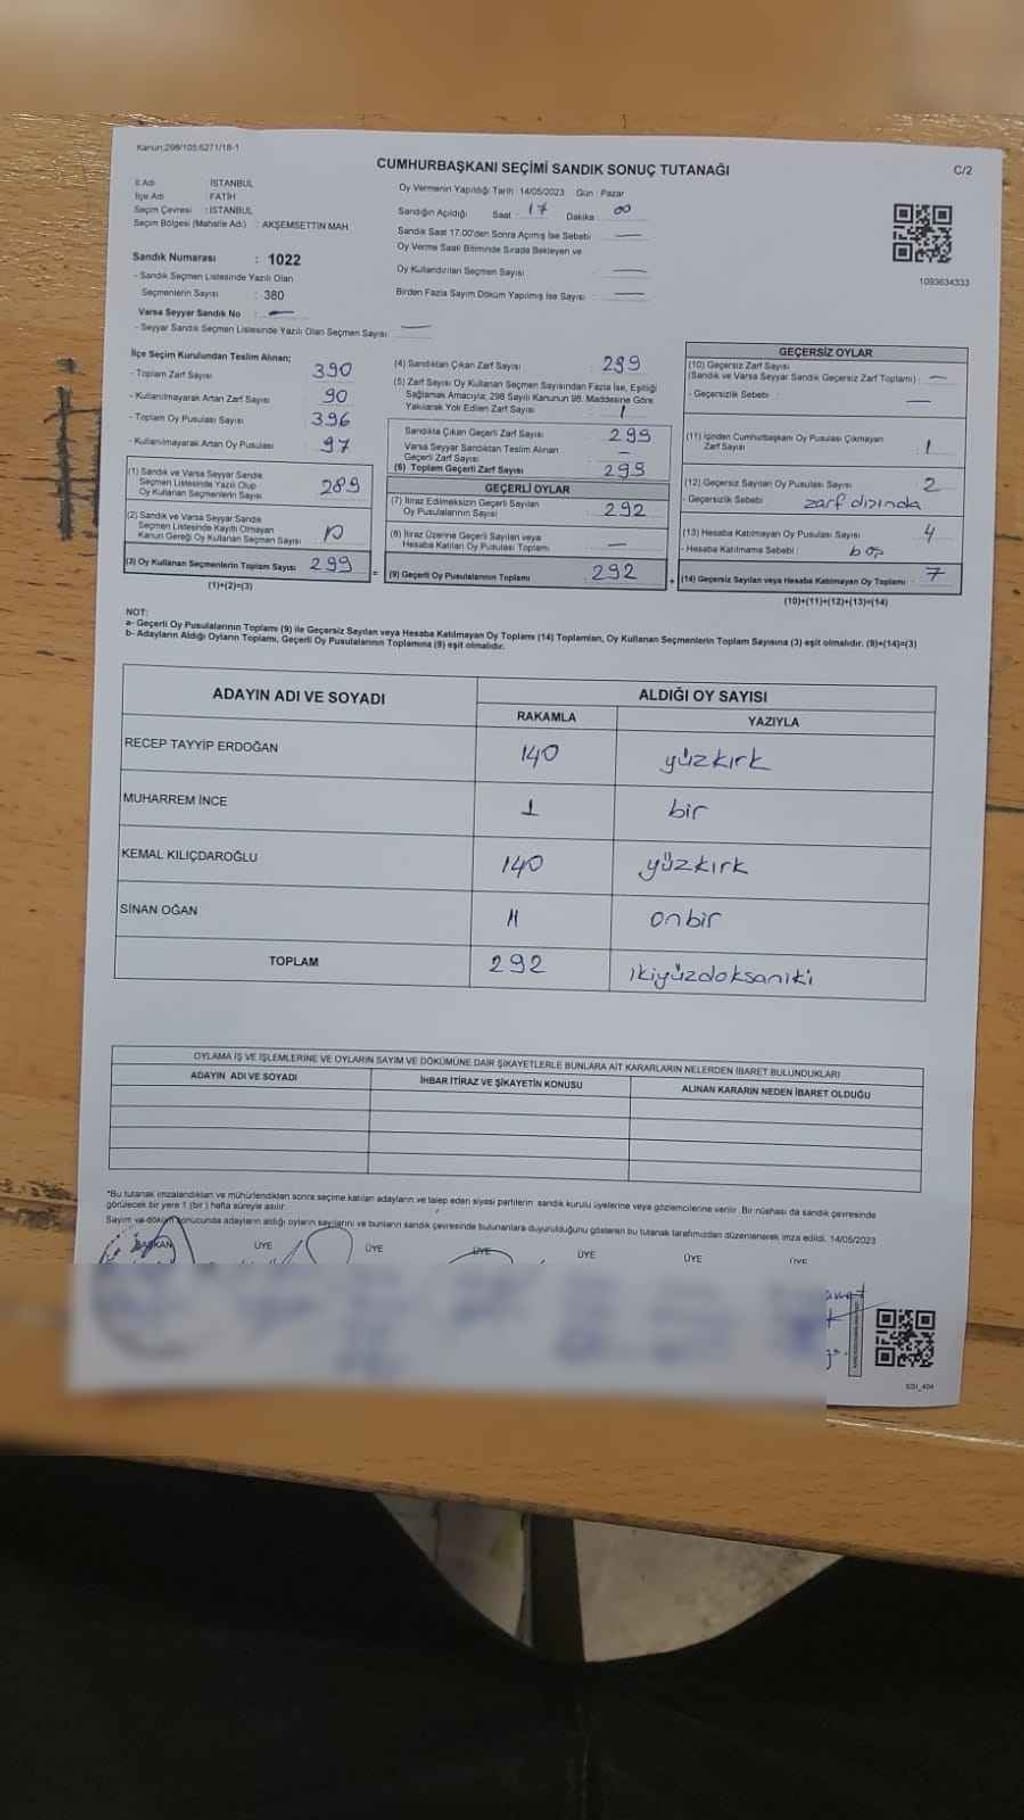 Kanun:298/105;6271/18-1
CUMHURBAŞKANI SEÇİMİ SANDIK SONUÇ TUTANAĞI
C/2
İl Adı : İSTANBUL
İlçe Adı : FATİH
Seçim Çevresi : İSTANBUL
Seçim Bölgesi (Mahalle Adı) : AKŞEMSETTİN MAH
Sandık Numarası : 1022
- Sandık Seçmen Listesinde Yazılı Olan
Seçmenlerin Sayısı : 380
Varsa Seyyar Sandık No : —
- Seyyar Sandık Seçmen Listesinde Yazılı Olan Seçmen Sayısı: —
Oy Vermenin Yapıldığı Tarih : 14/05/2023 Gün : Pazar
Sandığın Açıldığı Saat : 17 Dakika : 00
Sandık Saat 17.00'den Sonra Açılmış İse Sebebi : —
Oy Verme Saati Bitiminde Sırada Bekleyen ve
Oy Kullandırılan Seçmen Sayısı : —
Birden Fazla Sayım Döküm Yapılmış İse Sayısı : —
1093634333
İlçe Seçim Kurulundan Teslim Alınan;
- Toplam Zarf Sayısı 390
- Kullanılmayarak Artan Zarf Sayısı 90
- Toplam Oy Pusulası Sayısı 396
- Kullanılmayarak Artan Oy Pusulası 97
(1) Sandık ve Varsa Seyyar Sandık
Seçmen Listesinde Yazılı Olup
Oy Kullanan Seçmenlerin Sayısı 289
(2) Sandık ve Varsa Seyyar Sandık
Seçmen Listesinde Kayıtlı Olmayan
Kanun Gereği Oy Kullanan Seçmen Sayısı
(3) Oy Kullanan Seçmenlerin Toplam Sayısı 299
(1)+(2)=(3)
(4) Sandıktan Çıkan Zarf Sayısı 299
(5) Zarf Sayısı Oy Kullanan Seçmen Sayısından Fazla İse, Eşitliği
Sağlamak Amacıyla; 298 Sayılı Kanunun 98. Maddesine Göre
Yakılarak Yok Edilen Zarf Sayısı 1
Sandıkta Çıkan Geçerli Zarf Sayısı 299
Varsa Seyyar Sandıktan Teslim Alınan
Geçerli Zarf Sayısı —
(6) Toplam Geçerli Zarf Sayısı 299
GEÇERLİ OYLAR
(7) İtiraz Edilmeksizin Geçerli Sayılan
Oy Pusulalarının Sayısı 292
(8) İtiraz Üzerine Geçerli Sayılan veya
Hesaba Katılan Oy Pusulası Toplamı —
= (9) Geçerli Oy Pusulalarının Toplamı 292
GEÇERSİZ OYLAR
(10) Geçersiz Zarf Sayısı
(Sandık ve Varsa Seyyar Sandık Geçersiz Zarf Toplamı) : —
- Geçersizlik Sebebi : —
(11) İçinden Cumhurbaşkanı Oy Pusulası Çıkmayan
Zarf Sayısı : 1
(12) Geçersiz Sayılan Oy Pusulası Sayısı : 2
- Geçersizlik Sebebi : zarf dışında
(13) Hesaba Katılmayan Oy Pusulası Sayısı : 4
- Hesaba Katılmama Sebebi : boş
+ (14) Geçersiz Sayılan veya Hesaba Katılmayan Oy Toplamı : 7
(10)+(11)+(12)+(13)=(14)
NOT:
a- Geçerli Oy Pusulalarının Toplamı (9) ile Geçersiz Sayılan veya Hesaba Katılmayan Oy Toplamı (14) Toplamları, Oy Kullanan Seçmenlerin Toplam Sayısına (3) eşit olmalıdır. (9)+(14)=(3)
b- Adayların Aldığı Oyların Toplamı, Geçerli Oy Pusulalarının Toplamına (9) eşit olmalıdır.
ADAYIN ADI VE SOYADI ALDIĞI OY SAYISI
RAKAMLA YAZIYLA
RECEP TAYYİP ERDOĞAN 140 yüzkırk
MUHARREM İNCE 1 bir
KEMAL KILIÇDAROĞLU 140 yüzkırk
SİNAN OĞAN 11 onbir
TOPLAM 292 ikiyüzdoksaniki
OYLAMA İŞ VE İŞLEMLERİNE VE OYLARIN SAYIM VE DÖKÜMÜNE DAİR ŞİKAYETLERLE BUNLARA AİT KARARLARIN NELERDEN İBARET BULUNDUKLARI
ADAYIN ADI VE SOYADI İHBAR İTİRAZ VE ŞİKAYETİN KONUSU ALINAN KARARIN NEDEN İBARET OLDUĞU
*Bu tutanak imzalandıktan ve mühürlendikten sonra seçime katılan adayların ve talep eden siyasi partilerin sandık kurulu üyelerine veya gözlemcilerine verilir. Bir nüshası da sandık çevresinde
görülecek bir yere 1 (bir) hafta süreyle asılır.
Sayım ve döküm sonucunda adayların aldığı oyların sayılarını ve bunların sandık çevresinde bulunanlara duyurulduğunu gösteren bu tutanak tarafımızdan düzenlenerek imza edildi. 14/05/2023
BAŞKAN ÜYE ÜYE ÜYE ÜYE ÜYE ÜYE